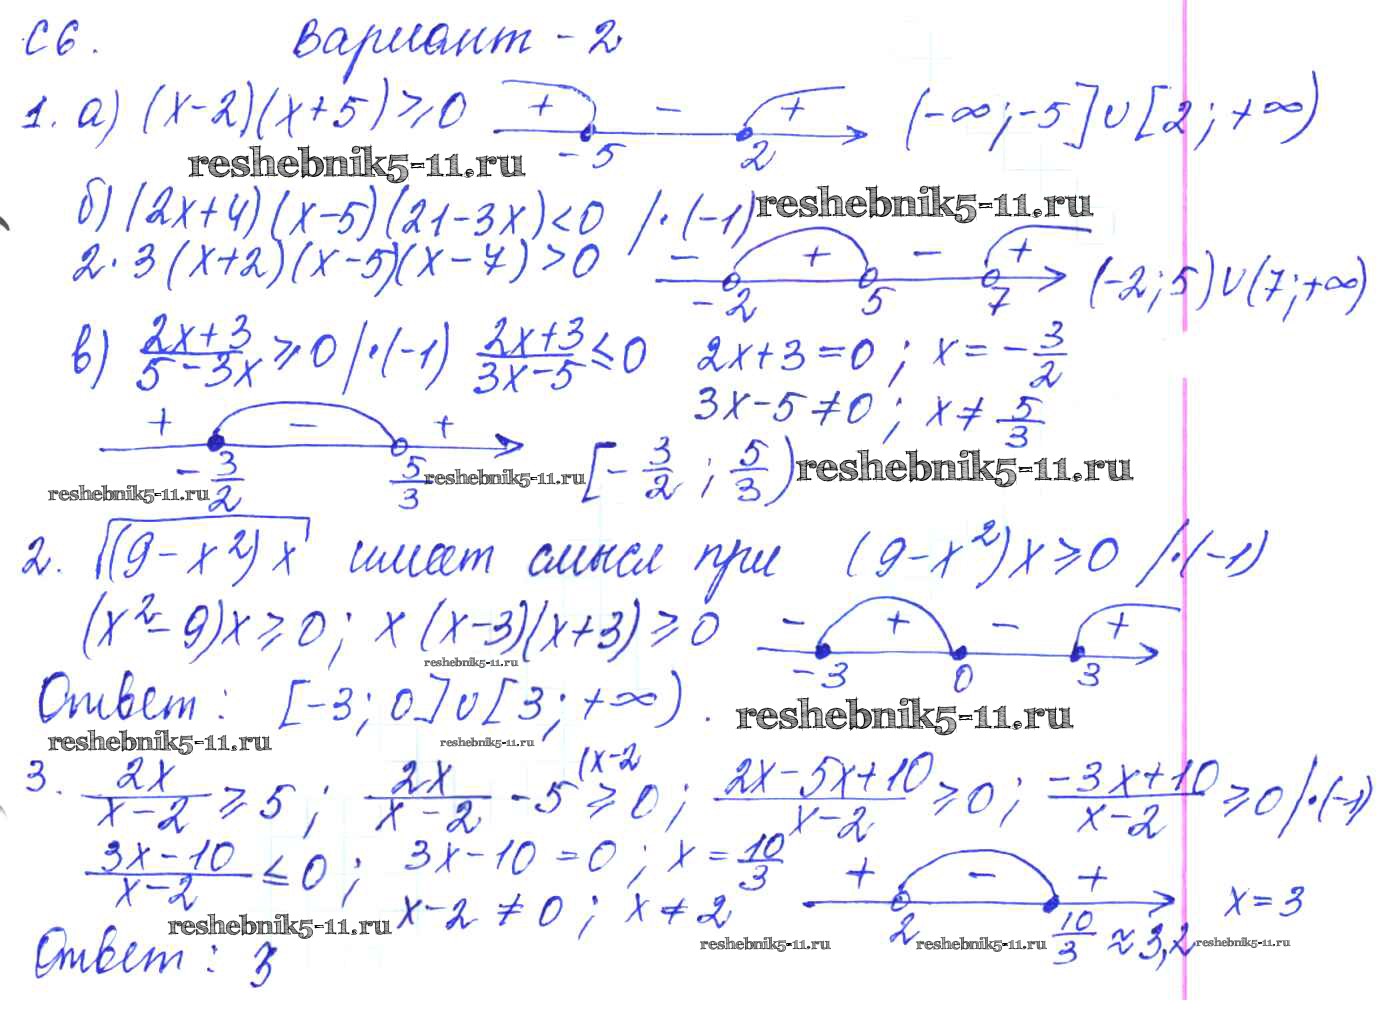 С 6. Вариант - 2
1. а) (x-2)(x+5)≥0 + - + -5 2 (-∞;-5]∪[2;+∞)
reshebnik5-11.ru
б) (2x+4)(x-5)(21-3x)<0 /·(-1) reshebnik5-11.ru
2·3(x+2)(x-5)(x-7)>0 - + - + -2 5 7 (-2;5)∪(7;+∞)
в) (2x+3)/(5-3x)≥0 /·(-1) (2x+3)/(3x-5)≤0 2x+3=0; x=-3/2
3x-5≠0; x≠5/3
+ - + -3/2 5/3 [-3/2; 5/3) reshebnik5-11.ru
reshebnik5-11.ru reshebnik5-11.ru
2. √((9-x²)x) имеет смысл при (9-x²)x≥0 /·(-1)
(x²-9)x≥0; x(x-3)(x+3)≥0 - + - + -3 0 3
reshebnik5-11.ru
Ответ: [-3;0]∪[3;+∞). reshebnik5-11.ru
reshebnik5-11.ru reshebnik5-11.ru
3. 2x/(x-2)≥5; 2x/(x-2) -5 (x-2 ≥0; (2x-5x+10)/(x-2)≥0; (-3x+10)/(x-2)≥0 /·(-1)
(3x-10)/(x-2)≤0; 3x-10=0; x=10/3 + - + 2 10/3≈3,2 x=3
x-2≠0; x≠2
reshebnik5-11.ru reshebnik5-11.ru reshebnik5-11.ru reshebnik5-11.ru
Ответ: 3